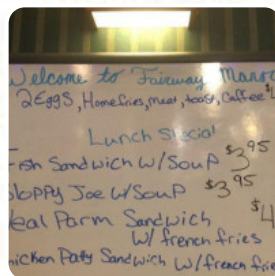 Welcome to Fairway Manor
2 Eggs, Homefries, meat, toast, Caffee $
Lunch Special
Fish Sandwich w/ Soup $3.95
Sloppy Joe w/ Soup $3.95
Veal Parm Sandwich $4
w/ french fries
Chicken Patty Sandwich w/ french fries